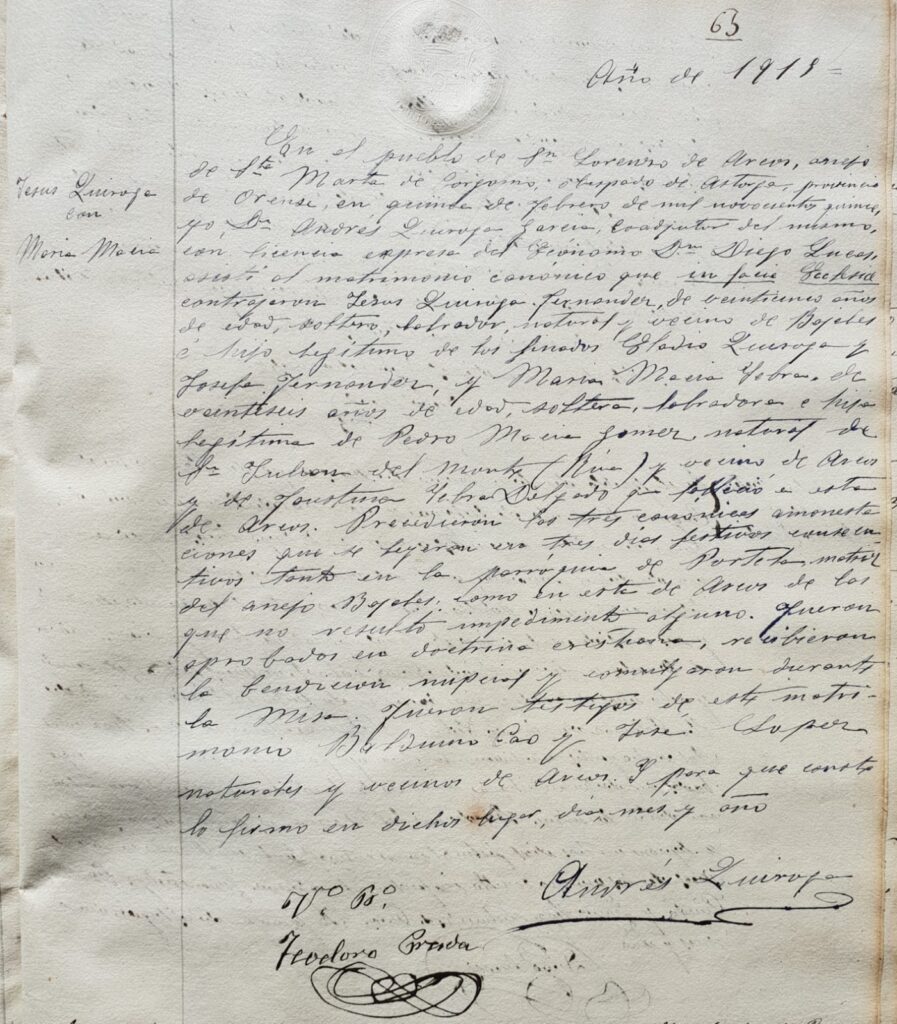 63
Año de 1915=
Jesus Quiroga
con
Maria Macia
En el pueblo de Sn Lorenzo de Arcos, anejo
de Sta Marta de obispado de Astorga, provincia
de Orense, en quince de febrero de mil novecientos quince,
yo, Dn Andrés Quiroga Garcia, Coadjutor del mismo,
con licencia expresa del Ecónomo Dn Diego Lucas,
asistí al matrimonio canonico que in facie Ecclesiæ
contrajeron Jesus Quiroga Fernandez, de veinticinco años
de edad, soltero, labrador, natural y vecino de Bojates
é hijo legítimo de los finados Eladio Quiroga y
Josefa Fernandez, y Maria Macia Yebra, de
veintiseis años de edad, soltera, labradora e hija
legítima de Pedro Macia Gomez natural de
Sn Julian del Monte (Rúa) y vecino de Arcos
y de Faustina Yebra Delgado qe falleció en esta
de Arcos. Precedieron las tres canonicas amonesta
ciones que se leyeron en tres dias festivos consecu
tivos tanto en la parroquia de Portela matriz
del anejo Bojates, como en esta de Arcos de las
que no resultó impedimento alguno. Fueron
aprobados en doctrina cristiana, recibieron
la bendición nupcial y comulgaron durante
la Misa. Fueron testigos de este matri-
monio Balduino Cao y José Lopez
naturales y vecinos de Arcos. Y para que conste
lo firmo en dichos lugar dia mes y año
Andrés Quiroga
Vº Bº.
Teodoro Prada